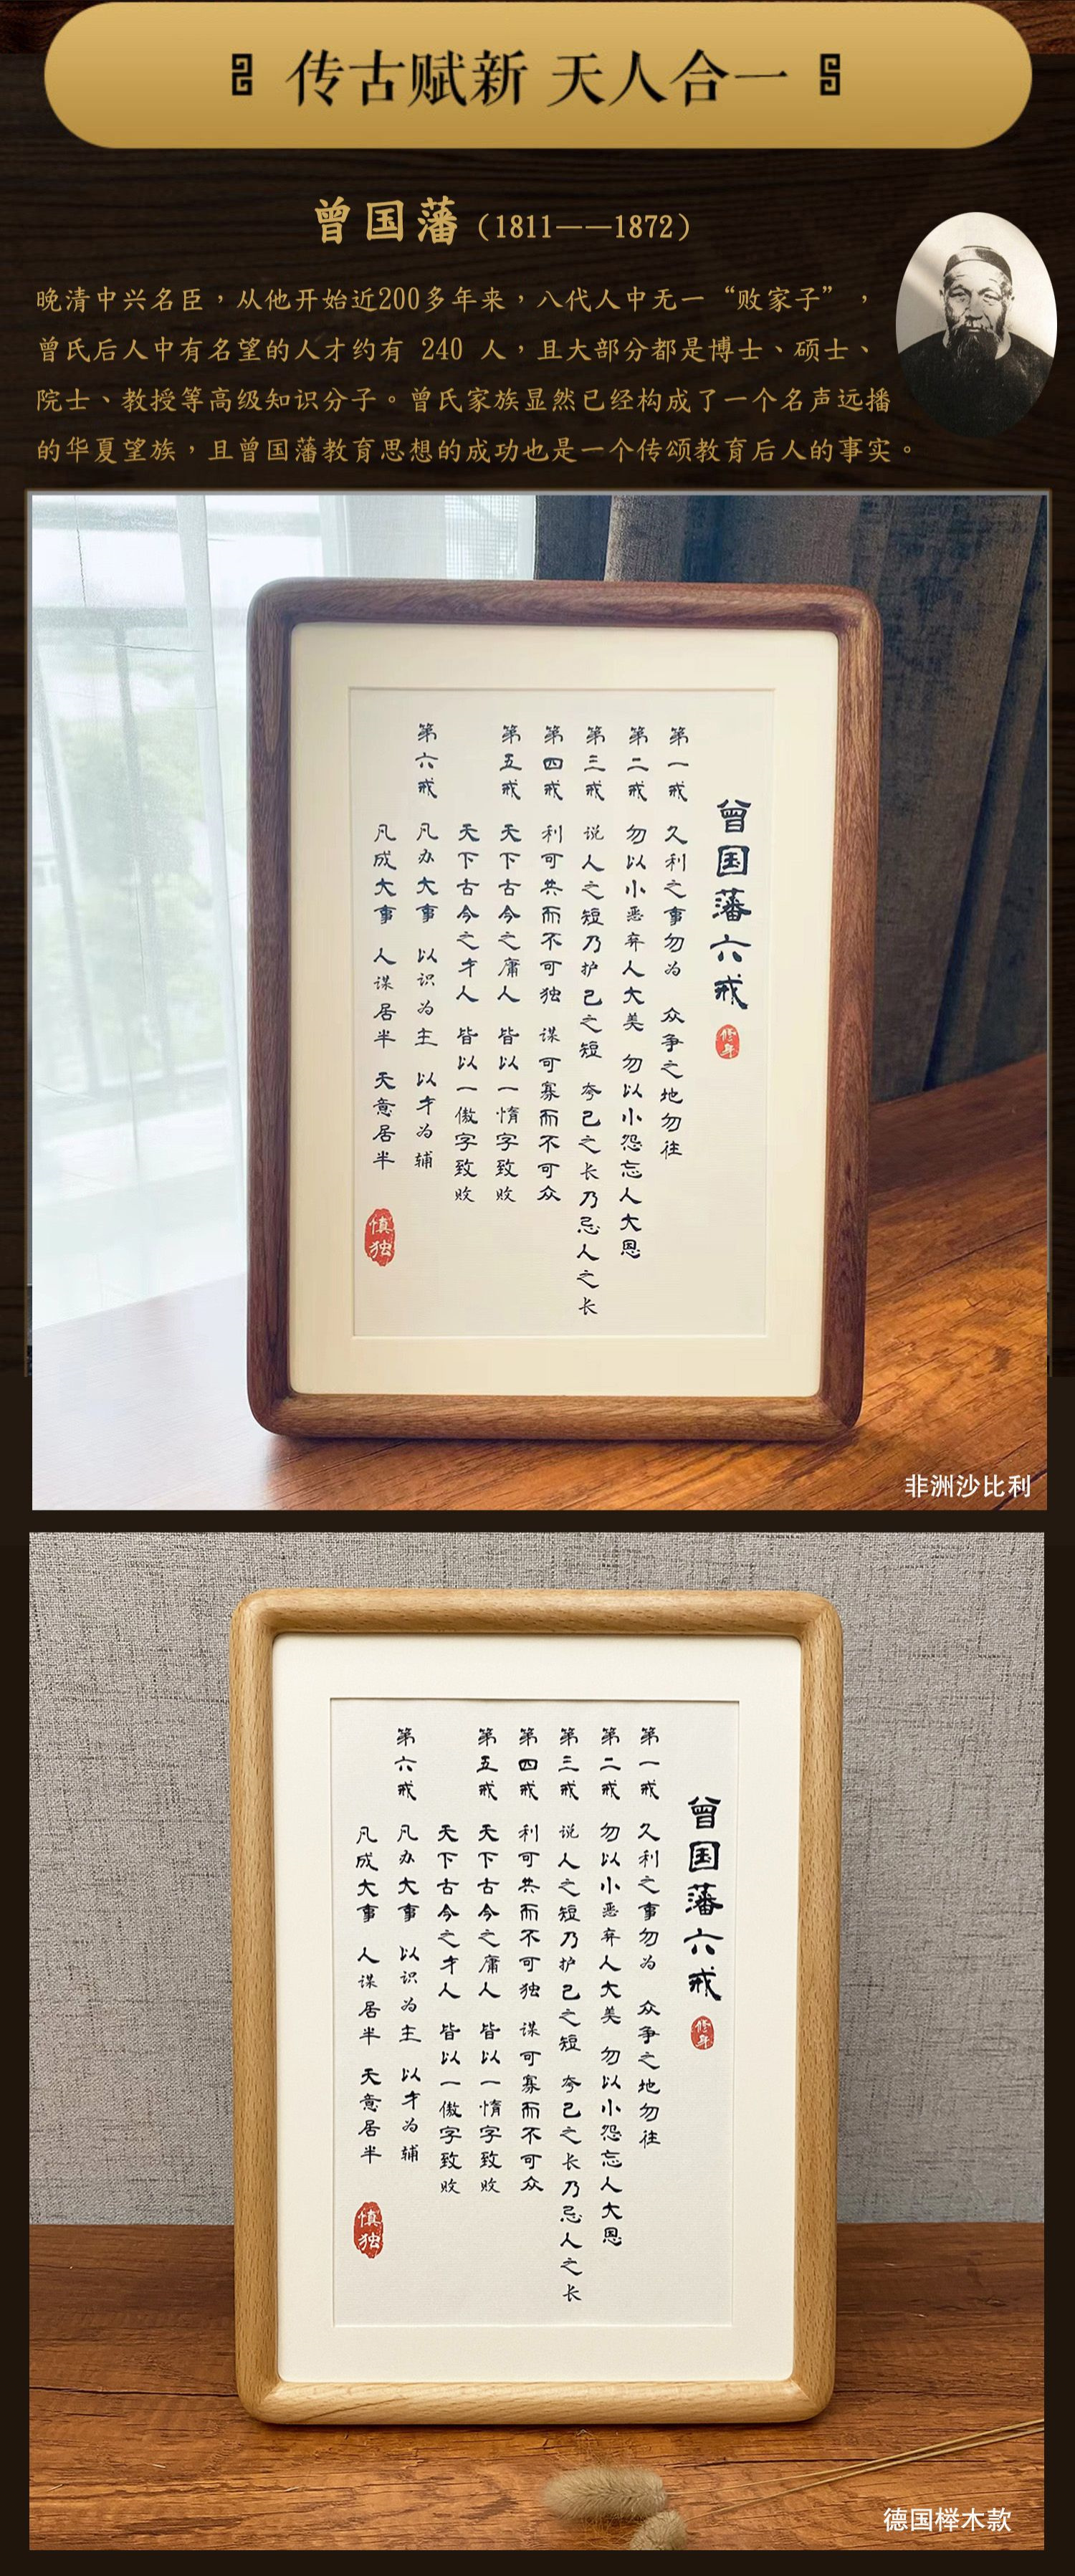 传古赋新 天人合一
曾国藩（1811——1872）
晚清中兴名臣，从他开始近200多年来，八代人中无一“败家子”，
曾氏后人中有名望的人才约有 240 人，且大部分都是博士、硕士、
院士、教授等高级知识分子。曾氏家族显然已经构成了一个名声远播
的华夏望族，且曾国藩教育思想的成功也是一个传颂教育后人的事实。
曾国藩六戒
修身
第一戒 久利之事勿为 众争之地勿往
第二戒 勿以小恶弃人大美 勿以小怨忘人大恩
第三戒 说人之短乃护己之短 夸己之长乃忌人之长
第四戒 利可共而不可独 谋可寡而不可众
第五戒 天下古今之庸人 皆以一惰字致败
天下古今之才人 皆以一傲字致败
第六戒 凡办大事 以识为主 以才为辅
凡成大事 人谋居半 天意居半
慎独
非洲沙比利
曾国藩六戒
修身
第一戒 久利之事勿为 众争之地勿往
第二戒 勿以小恶弃人大美 勿以小怨忘人大恩
第三戒 说人之短乃护己之短 夸己之长乃忌人之长
第四戒 利可共而不可独 谋可寡而不可众
第五戒 天下古今之庸人 皆以一惰字致败
天下古今之才人 皆以一傲字致败
第六戒 凡办大事 以识为主 以才为辅
凡成大事 人谋居半 天意居半
慎独
德国榉木款